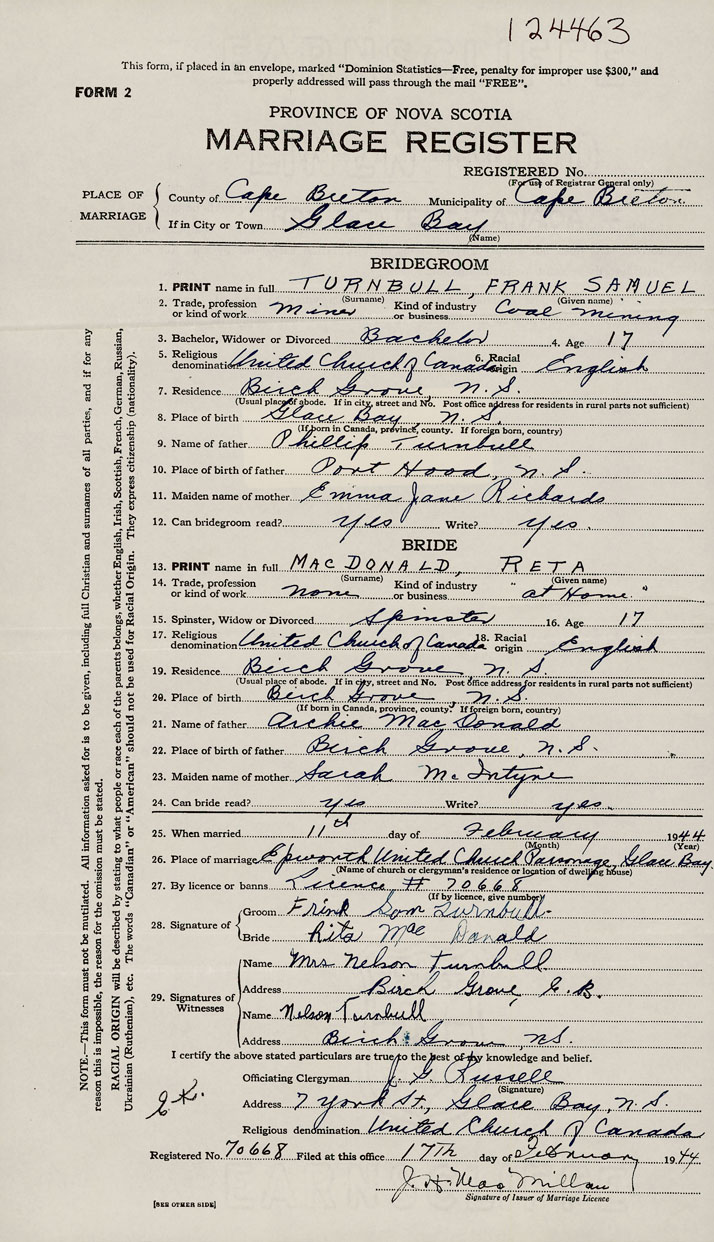 124463
This form, if placed in an envelope, marked "Dominion Statistics—Free, penalty for improper use $300," and
properly addressed will pass through the mail "FREE".
FORM 2
PROVINCE OF NOVA SCOTIA
MARRIAGE REGISTER
REGISTERED No.
(For use of Registrar General only)
PLACE OF MARRIAGE
County of Cape Breton Municipality of Cape Breton
If in City or Town Glace Bay
(Name)
BRIDEGROOM
1. PRINT name in full TURNBULL, FRANK SAMUEL
(Surname) (Given name)
2. Trade, profession or kind of work miner Kind of industry or business Coal mining
3. Bachelor, Widower or Divorced Bachelor 4. Age 17
5. Religious denomination United Church of Canada 6. Racial origin English
7. Residence Birch Grove, N.S.
(Usual place of abode. If in city, street and No. Post office address for residents in rural parts not sufficient)
8. Place of birth Glace Bay, N.S.
(If born in Canada, province, county. If foreign born, country)
9. Name of father Phillip Turnbull
10. Place of birth of father Port Hood, N.S.
11. Maiden name of mother Emma Jane Richards
12. Can bridegroom read? yes Write? yes.
BRIDE
13. PRINT name in full MACDONALD, RETA
(Surname) (Given name)
14. Trade, profession or kind of work none Kind of industry or business "at Home"
15. Spinster, Widow or Divorced Spinster 16. Age 17
17. Religious denomination United Church of Canada 18. Racial origin English
19. Residence Birch Grove N.S.
(Usual place of abode. If in city, street and No. Post office address for residents in rural parts not sufficient)
20. Place of birth Birch Grove, N.S.
(If born in Canada, province, county. If foreign born, country)
21. Name of father Archie MacDonald
22. Place of birth of father Birch Grove, N.S.
23. Maiden name of mother Sarah McIntyre
24. Can bride read? yes Write? yes.
25. When married 11th day of February 1944
(Month) (Year)
26. Place of marriage Epworth United Church Parsonage, Glace Bay.
(Name of church or clergyman's residence or location of dwelling house)
27. By licence or banns Licence # 70668
(If by licence, give number)
28. Signature of
Groom Frink Sam Turnbull
Bride Rita Mac Donald
29. Signatures of Witnesses
Name Mrs Nelson Turnbull
Address Birch Grove, C.B.
Name Nelson Turnbull
Address Birch Grove NS.
I certify the above stated particulars are true to the best of my knowledge and belief.
Officiating Clergyman J. G. Russell
(Signature)
Address 7 York St., Glace Bay, N.S.
Religious denomination United Church of Canada
Registered No. 70668 Filed at this office 17th day of February 1944
J. H. MacMillan
Signature of Issuer of Marriage Licence
[SEE OTHER SIDE]
NOTE.—This form must not be mutilated. All information asked for is to be given, including full Christian and surnames of all parties, and if for any
reason this is impossible, the reason for the omission must be stated.
RACIAL ORIGIN will be described by stating to what people or race each of the parents belongs, whether English, Irish, Scottish, French, German, Russian,
Ukrainian (Ruthenian), etc. The words "Canadian" or "American" should not be used for Racial Origin. They express citizenship (nationality).